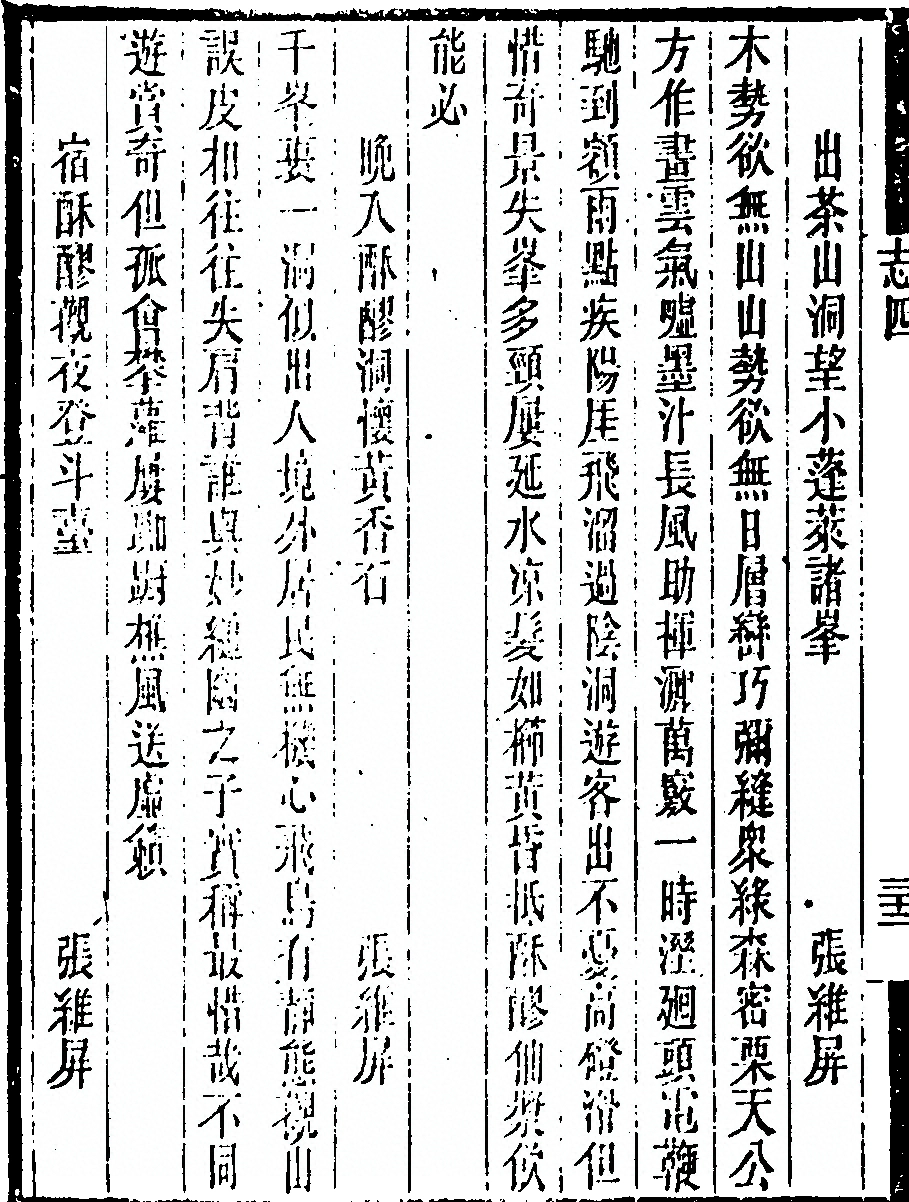 志四
三十三
出茶山洞望小蓬萊諸峯　張維屏
木勢欲無山山勢欲無日層巒巧彌縫衆綠森密栗天公
方作畫雲氣噓墨汁長風助揮灑萬竅一時溼廻頭電鞭
馳到額雨點疾陽厓飛溜過陰洞遊客出不憂高磴滑但
惜奇景失峯多頸屢延水凉髮如櫛黃昏抵酥醪仙漿飲
能必
晚入酥醪洞懷黃香石　張維屏
千峯裹一洞似出人境外居民無機心飛鳥有靜態觀山
誤皮相往往失肩背誰與妙繩幽之子實稱最惜哉不同
遊賞奇但孤會攀蘿屢踟躕樵風送虛籟
宿酥醪觀夜登斗臺　張維屏